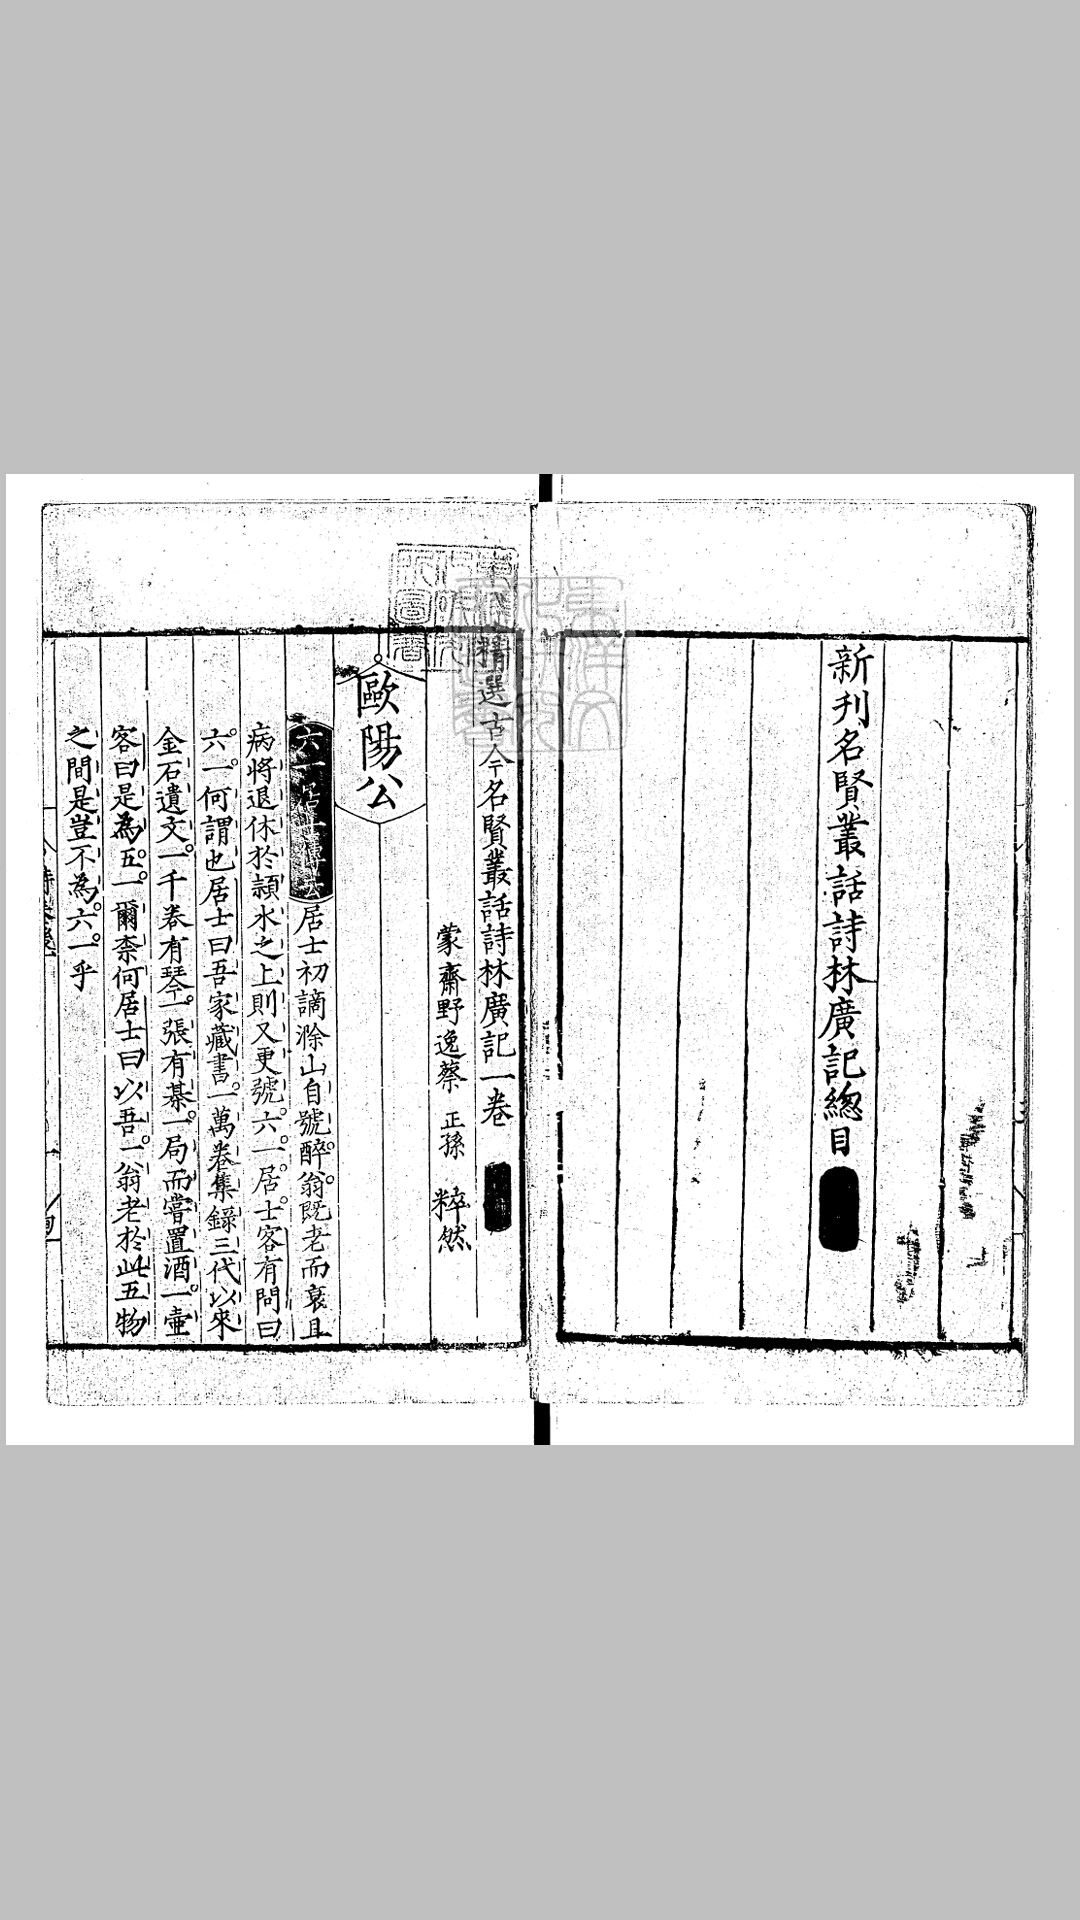 新刊名賢叢話詩林廣記總目
精選古今名賢叢話詩林廣記一卷
蒙齋野逸蔡 正孫 粹然
歐陽公
六一居士傳云居士初謫滁山自號醉翁既老而衰且
病將退休於潁水之上則又更號六一居士客有問曰
六一何謂也居士曰吾家藏書一萬卷集錄三代以來
金石遺文一千卷有琴一張有棊一局而嘗置酒一壷
客曰是為五一爾柰何居士曰以吾一翁老於此五物
之間是豈不為六一乎